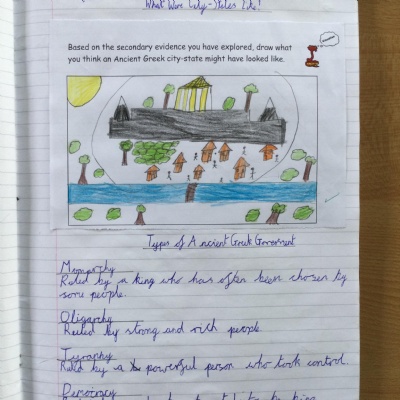 What Were City-States Like!
Based on the secondary evidence you have explored, draw what
you think an Ancient Greek city-state might have looked like.
Types of Ancient Greek Goverment
Monarchy
Ruled by a king who has often been chosen by
some people.
Oligarchy
Ruled by strong and rich people.
Tyranny
Ruled by a powerful person who took control.
Democracy